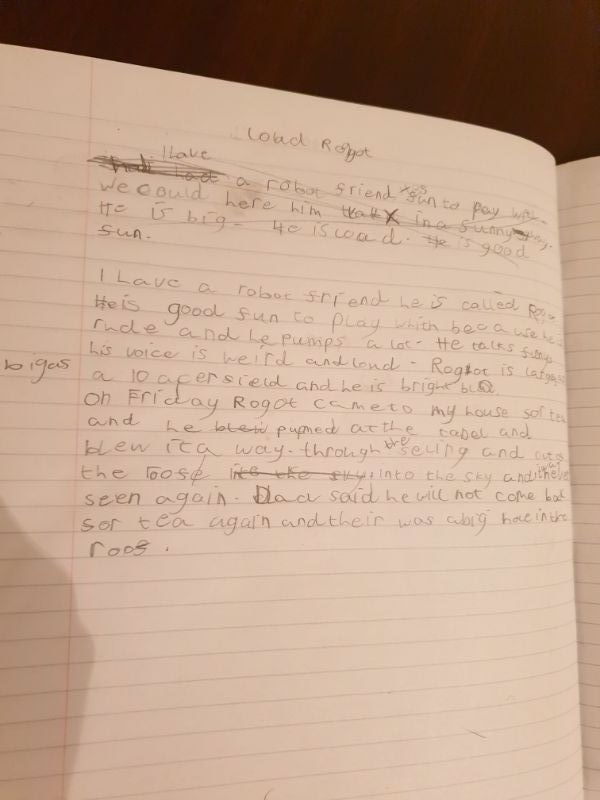 Load Robot
I have
a robot friend fun to pay with
we could here him in a funny way.
He is big - He is load. He is good
fun.
I have a robot friend he is called
He is good fun to play which because he
rude and he pumps a lot. He talks funny
his voice is weird and loud - Rogot is large
bigas
a 10 acer field and he is bright
On Friday Rogot came to my house for tea
and he blew pupmed at the tabel and
blew it a way. through the seling and out of
the roofe into the sky and
seen again. Dad said he will not come back
for tea again and their was a big hole in the
roof.